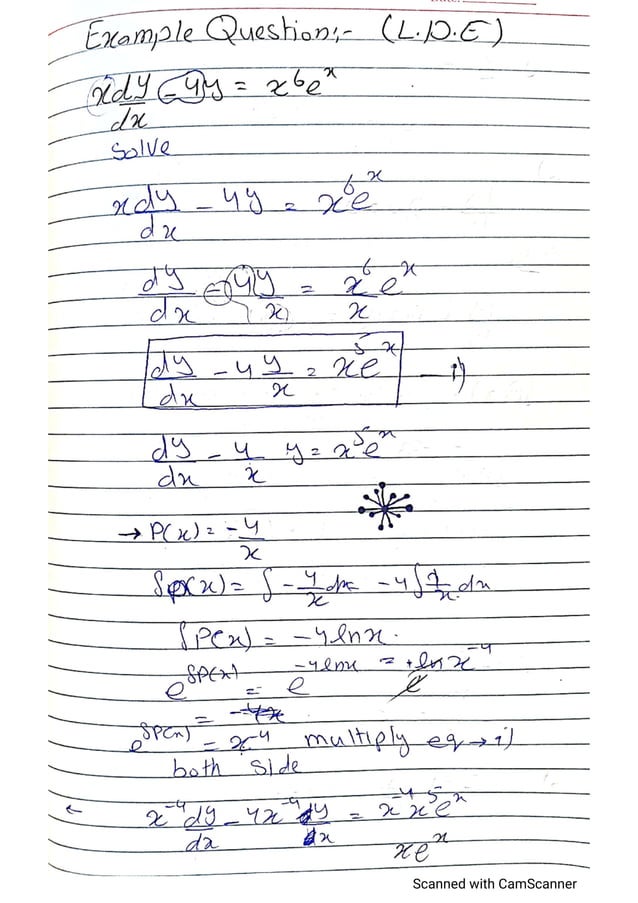 Example Question:- (L.D.E)
xdy/dx - 4y = x⁶eˣ
Solve
xdy/dx - 4y = x⁶eˣ
dy/dx - 4y/x = x⁶eˣ/x
dy/dx - 4 y/x = x⁵eˣ — i)
dy/dx - 4/x y = x⁵eˣ
→ P(x) = -4/x
∫P(x) = ∫ -4/x dx = -4∫1/x dx
∫P(x) = -4lnx.
e^∫P(x) = e^-4lnx = e^+lnx⁻⁴
e^∫P(x) = x⁻⁴ multiply eq → i)
both side
← x⁻⁴dy/dx - 4x⁻⁴ dy/dx = x⁻⁴x⁵eˣ
xeˣ
Scanned with CamScanner